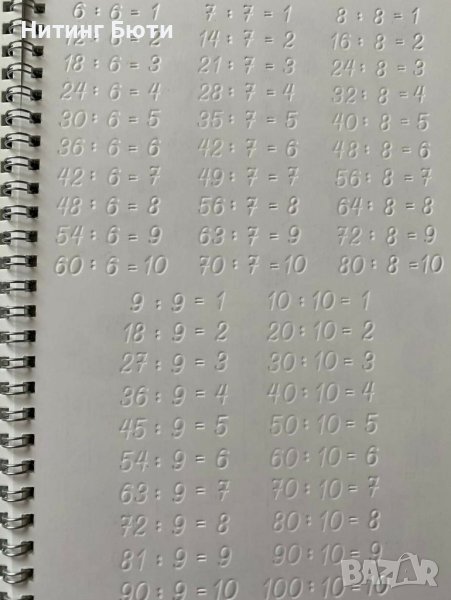 6 : 6 = 1 7 : 7 = 1 8 : 8 = 1
Нитинг Бюти
12 : 6 = 2 14 : 7 = 2 16 : 8 = 2
18 : 6 = 3 21 : 7 = 3 24 : 8 = 3
24 : 6 = 4 28 : 7 = 4 32 : 8 = 4
30 : 6 = 5 35 : 7 = 5 40 : 8 = 5
36 : 6 = 6 42 : 7 = 6 48 : 8 = 6
42 : 6 = 7 49 : 7 = 7 56 : 8 = 7
48 : 6 = 8 56 : 7 = 8 64 : 8 = 8
54 : 6 = 9 63 : 7 = 9 72 : 8 = 9
60 : 6 = 10 70 : 7 = 10 80 : 8 = 10
9 : 9 = 1 10 : 10 = 1
18 : 9 = 2 20 : 10 = 2
27 : 9 = 3 30 : 10 = 3
36 : 9 = 4 40 : 10 = 4
45 : 9 = 5 50 : 10 = 5
54 : 9 = 6 60 : 10 = 6
63 : 9 = 7 70 : 10 = 7
72 : 9 = 8 80 : 10 = 8
81 : 9 = 9 90 : 10 = 9
90 : 9 = 10 100 : 10 = 10
BAZAR